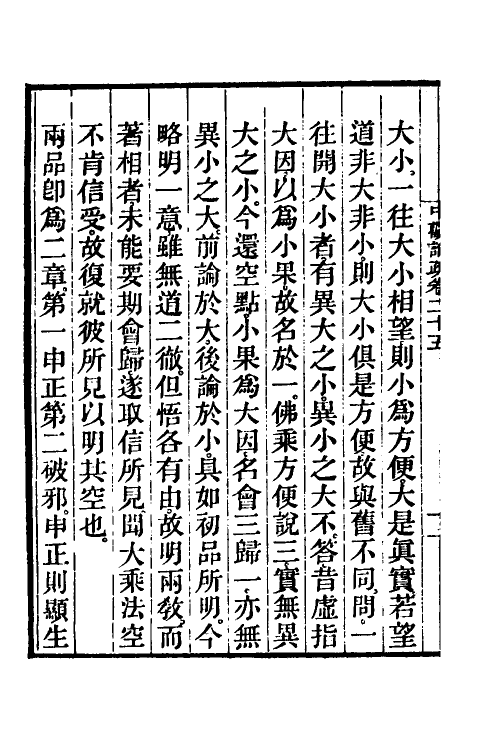 中觀論疏卷二十五
大小。一往大小相望。則小爲方便。大是眞實。若望
道非大非小。則大小俱是方便。故與舊不同。問。一
往開大小者。有異大之小。異小之大不。答。昔虛指
大因。以爲小果。故名於一。佛乘方便說三。實無異
大之小。今還空點小果爲大因。名會三歸一。亦無
異小之大。前論於大。後論於小。具如初品所明。今
略明一意。雖無道二徹。但悟各有由。故明兩敎。而
著相者。未能要期會歸。遂取信所見。聞大乘法空
不肯信受。故復就彼所見以明其空也。
兩品卽爲二章。第一申正。第二破邪。申正則顯生